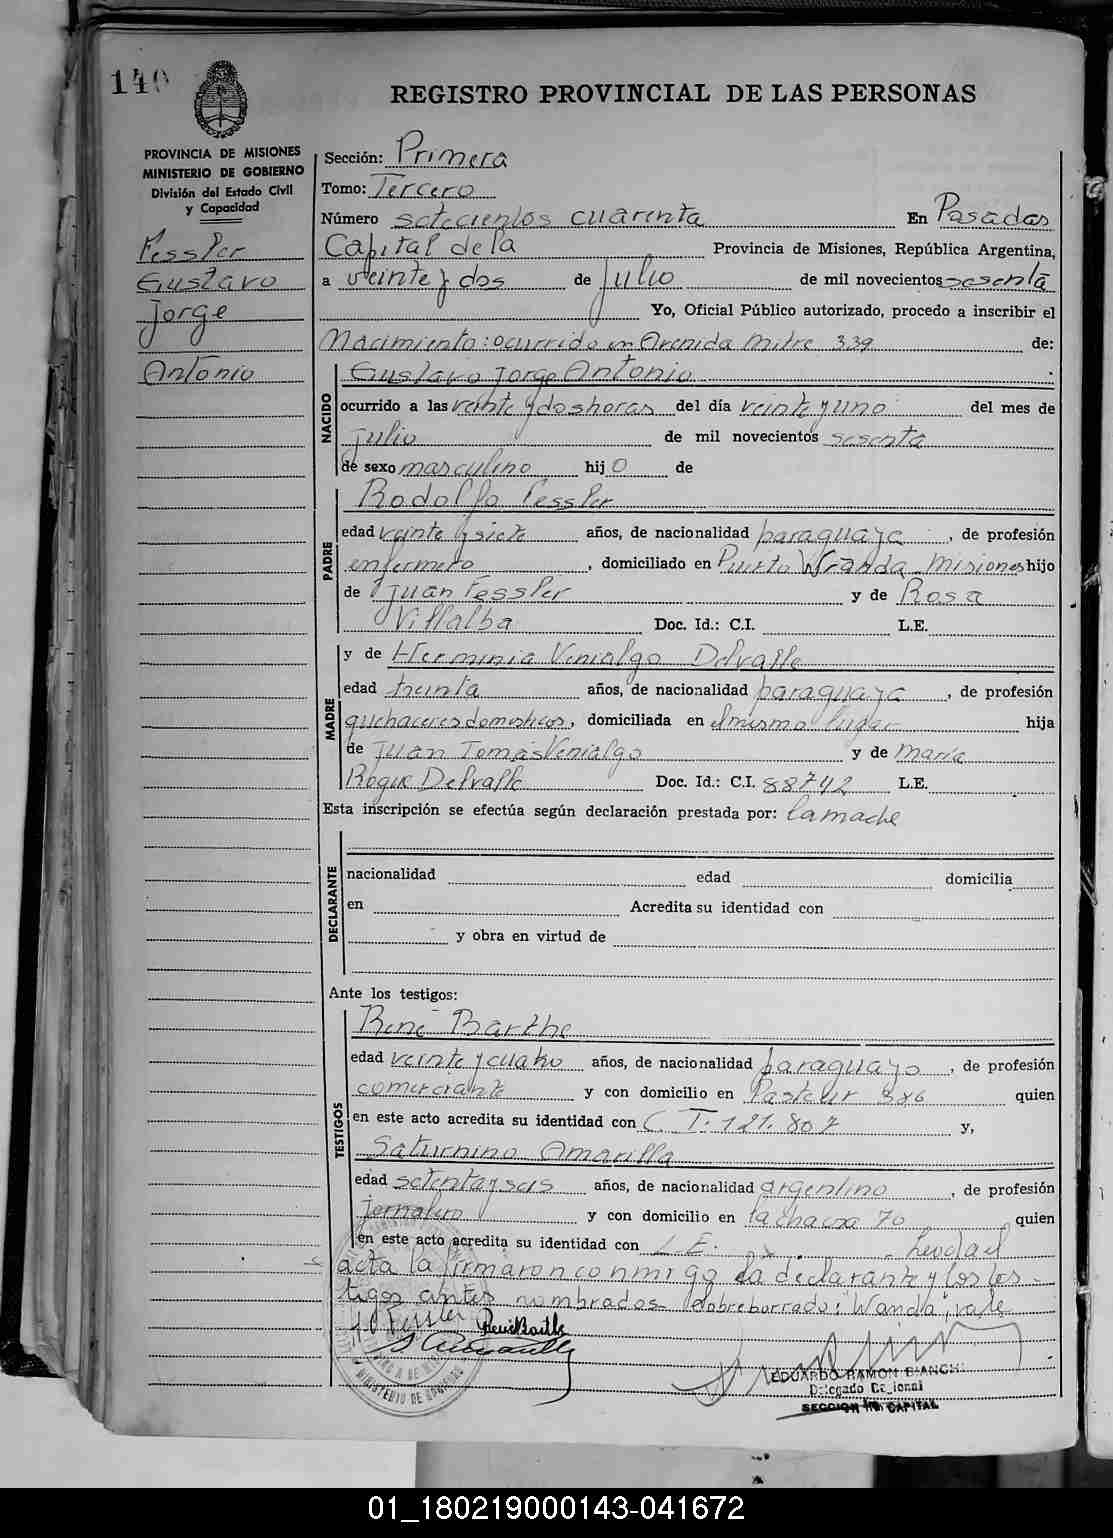 140
REGISTRO PROVINCIAL DE LAS PERSONAS
PROVINCIA DE MISIONES
MINISTERIO DE GOBIERNO
División del Estado Civil
y Capacidad
Fessler
Gustavo
Jorge
Antonio
Sección: Primera
Tomo: Tercero
Número setecientos cuarenta En Posadas
Capital de la Provincia de Misiones, República Argentina,
a veinte y dos de Julio de mil novecientos sesenta
Yo, Oficial Público autorizado, procedo a inscribir el
Nacimiento: ocurrido en Avenida Mitre 339 de:
NACIDO
Gustavo Jorge Antonio
ocurrido a las veinte y dos horas del día veinte y uno del mes de
julio de mil novecientos sesenta
de sexo masculino hijo de
PADRE
Rodolfo Fessler
edad veinte y siete años, de nacionalidad paraguaya, de profesión
enfermero, domiciliado en Puerto Wanda Misiones hijo
de Juan Fessler y de Rosa
Villalba Doc. Id.: C.I. L.E.
MADRE
y de Herminia Venialgo Delvalle
edad treinta años, de nacionalidad paraguaya, de profesión
quehaceres domesticos, domiciliada en el mismo lugar hija
de Juan Tomás Venialgo y de María
Roque Delvalle Doc. Id.: C.I. 88742 L.E.
Esta inscripción se efectúa según declaración prestada por: la madre
DECLARANTE
nacionalidad edad domicilia
en Acredita su identidad con
y obra en virtud de
Ante los testigos:
TESTIGOS
René Barthe
edad veinte y cuatro años, de nacionalidad paraguayo, de profesión
comerciante y con domicilio en Pasteur quien
en este acto acredita su identidad con C. I. 121.807 y,
Saturnino Amarilla
edad setenta y seis años, de nacionalidad argentino, de profesión
jornalero y con domicilio en la chacra 70 quien
en este acto acredita su identidad con L E. Leida el
acta la firmaron conmigo la declarante y los tes-
tigos antes nombrados- Sobreborrado: "Wanda", vale
Fessler René Barthe
EDUARDO RAMON BIANCHI
Delegado Seccional
SECCION 1ra. CAPITAL
01_180219000143-041672